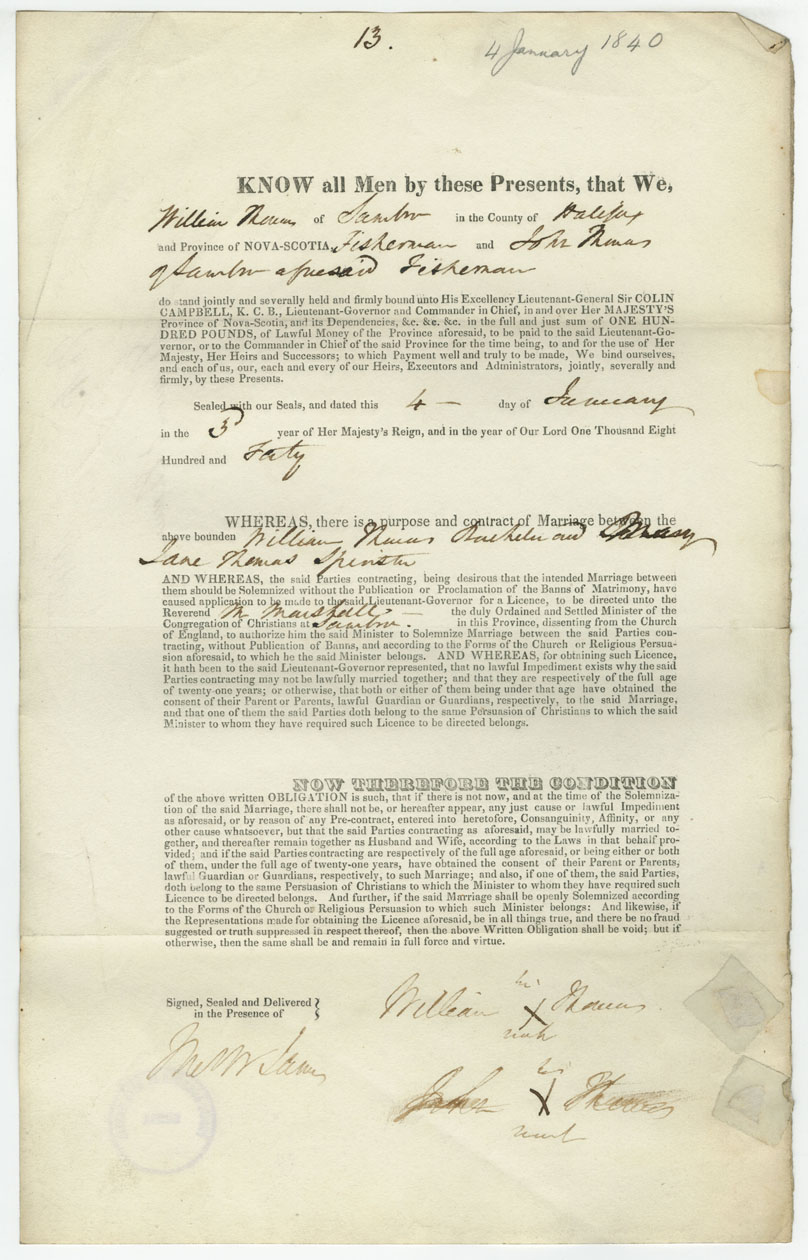 13.
4 January 1840
KNOW all Men by these Presents, that We,
William Thomas of Sambro in the County of Halifax
and Province of NOVA-SCOTIA, Fisherman and John Thomas
of Sambro aforesaid Fisherman
do stand jointly and severally held and firmly bound unto His Excellency Lieutenant-General Sir COLIN
CAMPBELL, K. C. B., Lieutenant-Governor and Commander in Chief, in and over Her MAJESTY'S
Province of Nova-Scotia, and its Dependencies, &c. &c. &c. in the full and just sum of ONE HUN-
DRED POUNDS, of Lawful Money of the Province aforesaid, to be paid to the said Lieutenant-Go-
vernor, or to the Commander in Chief of the said Province for the time being, to and for the use of Her
Majesty, Her Heirs and Successors; to which Payment well and truly to be made, We bind ourselves,
and each of us, our, each and every of our Heirs, Executors and Administrators, jointly, severally and
firmly, by these Presents.
Sealed with our Seals, and dated this 4 — day of January
in the 3d year of Her Majesty's Reign, and in the year of Our Lord One Thousand Eight
Hundred and Forty
WHEREAS, there is a purpose and contract of Marriage between the
above bounden William Thomas Bachelor and Mary
Jane Thomas Spinster
AND WHEREAS, the said Parties contracting, being desirous that the intended Marriage between
them should be Solemnized without the Publication or Proclamation of the Banns of Matrimony, have
caused application to be made to the said Lieutenant-Governor for a Licence, to be directed unto the
Reverend Mr Marshall — the duly Ordained and Settled Minister of the
Congregation of Christians at Sambro. in this Province, dissenting from the Church
of England, to authorize him the said Minister to Solemnize Marriage between the said Parties con-
tracting, without Publication of Banns, and according to the Forms of the Church or Religious Persua-
sion aforesaid, to which he the said Minister belongs. AND WHEREAS, for obtaining such Licence,
it hath been to the said Lieutenant-Governor represented, that no lawful Impediment exists why the said
Parties contracting may not be lawfully married together; and that they are respectively of the full age
of twenty-one years; or otherwise, that both or either of them being under that age have obtained the
consent of their Parent or Parents, lawful Guardian or Guardians, respectively, to the said Marriage,
and that one of them the said Parties doth belong to the same Persuasion of Christians to which the said
Minister to whom they have required such Licence to be directed belongs.
NOW THEREFORE THE CONDITION
of the above written OBLIGATION is such, that if there is not now, and at the time of the Solemniza-
tion of the said Marriage, there shall not be, or hereafter appear, any just cause or lawful Impediment
as aforesaid, or by reason of any Pre-contract, entered into heretofore, Consanguinity, Affinity, or any
other cause whatsoever, but that the said Parties contracting as aforesaid, may be lawfully married to-
gether, and thereafter remain together as Husband and Wife, according to the Laws in that behalf pro-
vided; and if the said Parties contracting are respectively of the full age aforesaid, or being either or both
of them, under the full age of twenty-one years, have obtained the consent of their Parent or Parents,
lawful Guardian or Guardians, respectively, to such Marriage; and also, if one of them, the said Parties,
doth belong to the same Persuasion of Christians to which the Minister to whom they have required such
Licence to be directed belongs. And further, if the said Marriage shall be openly Solemnized according
to the Forms of the Church or Religious Persuasion to which such Minister belongs: And likewise, if
the Representations made for obtaining the Licence aforesaid, be in all things true, and there be no fraud
suggested or truth suppressed in respect thereof, then the above Written Obligation shall be void; but if
otherwise, then the same shall be and remain in full force and virtue.
Signed, Sealed and Delivered
in the Presence of
his
William X Thomas
mark
his
John X Thomas
mark